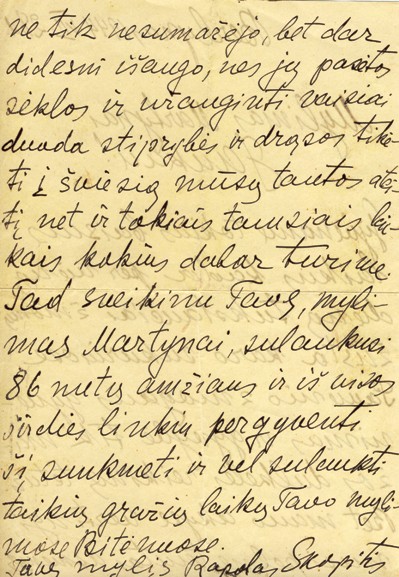 ne tik nesumažėjo, bet dar
didesni išaugo, nes jų pasėtos
sėklos ir uranginti vaisiai
duoda stiprybės ir drąsos tikė-
ti į šviesią mūsų tautos atei-
tį net ir tokiais tamsiais lai-
kais kokius dabar turime.
Tad sveikinu Tave, myli-
mas Martynai, sulaukusi
86 metų amžiaus ir iš visos
širdies linkiu pergyventi
šį sunkmetį ir vel sulaukti
taikių gražių laikų Tavo myli-
mose Bitėnuose.
Tave mylįs Rapolas Skipitis